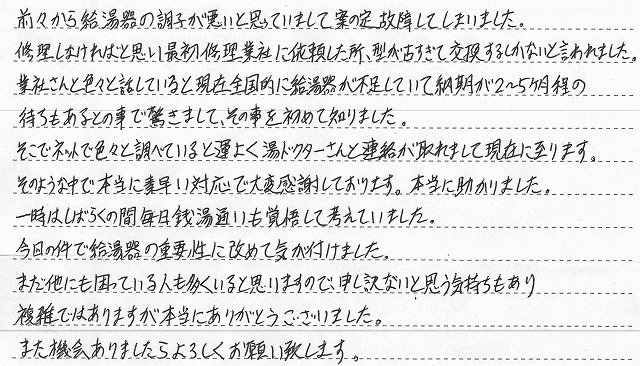 前々から給湯器の調子が悪いと思っていまして案の定故障してしまいました。
修理しなければと思い最初修理業社に依頼した所、型が古すぎて交換するしかないと言われました。
業社さんと色々と話していると現在全国的に給湯器が不足していて納期が2〜5ヶ月程の
待ちもあるとの事で驚きまして、その事を初めて知りました。
そこでネットで色々と調べていると運よく湯ドクターさんと連絡が取れまして現在に至ります。
そのような中で本当に素早い対応で大変感謝しております。本当に助かりました。
一時はしばらくの間毎日銭湯通いも覚悟して考えていました。
今回の件で給湯器の重要性に改めて気が付けました。
まだ他にも困っている人も多くいると思いますので、申し訳ないと思う気持ちもあり
複雑ではありますが本当にありがとうございました。
また機会ありましたらよろしくお願い致します。